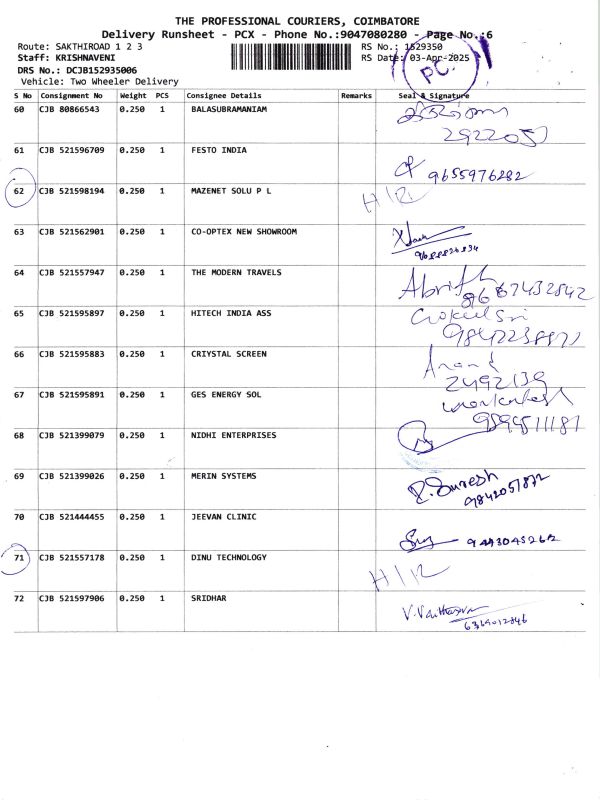 THE PROFESSIONAL COURIERS, COIMBATORE
Delivery Runsheet - PCX - Phone No.:9047080280 - Page No.:6
Route: SAKTHIROAD 1 2 3 RS No.: 1529350
Staff: KRISHNAVENI RS Date: 03-Apr-2025
DRS No.: DCJB152935006
Vehicle: Two Wheeler Delivery
PC.
S No Consignment No Weight PCS Consignee Details Remarks Seal & Signature
60 CJB 80866543 0.250 1 BALASUBRAMANIAM
2922057
61 CJB 521596709 0.250 1 FESTO INDIA
9655976282
62 CJB 521598194 0.250 1 MAZENET SOLU P L H/R
63 CJB 521562901 0.250 1 CO-OPTEX NEW SHOWROOM
64 CJB 521557947 0.250 1 THE MODERN TRAVELS
65 CJB 521595897 0.250 1 HITECH INDIA ASS
66 CJB 521595883 0.250 1 CRIYSTAL SCREEN Anand
2492139
67 CJB 521595891 0.250 1 GES ENERGY SOL
68 CJB 521399079 0.250 1 NIDHI ENTERPRISES
69 CJB 521399026 0.250 1 MERIN SYSTEMS R. Suresh
9842057872
70 CJB 521444455 0.250 1 JEEVAN CLINIC
71 CJB 521557178 0.250 1 DINU TECHNOLOGY H/R
72 CJB 521597906 0.250 1 SRIDHAR